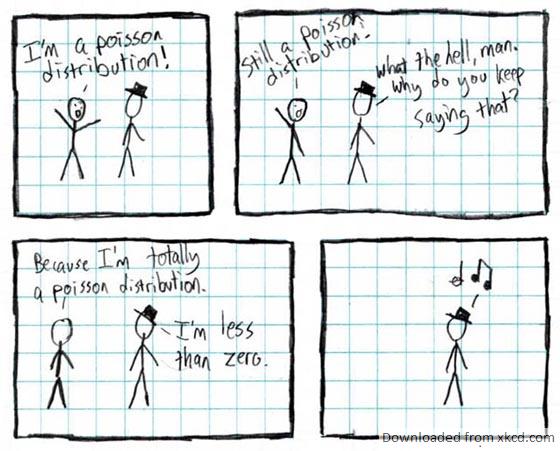 I'm a poisson
distribution!
Still a poisson
distribution.
What the hell, man.
why do you keep
saying that?
Because I'm totally
a poisson distribution.
I'm less
than zero.
Downloaded from xkcd.com